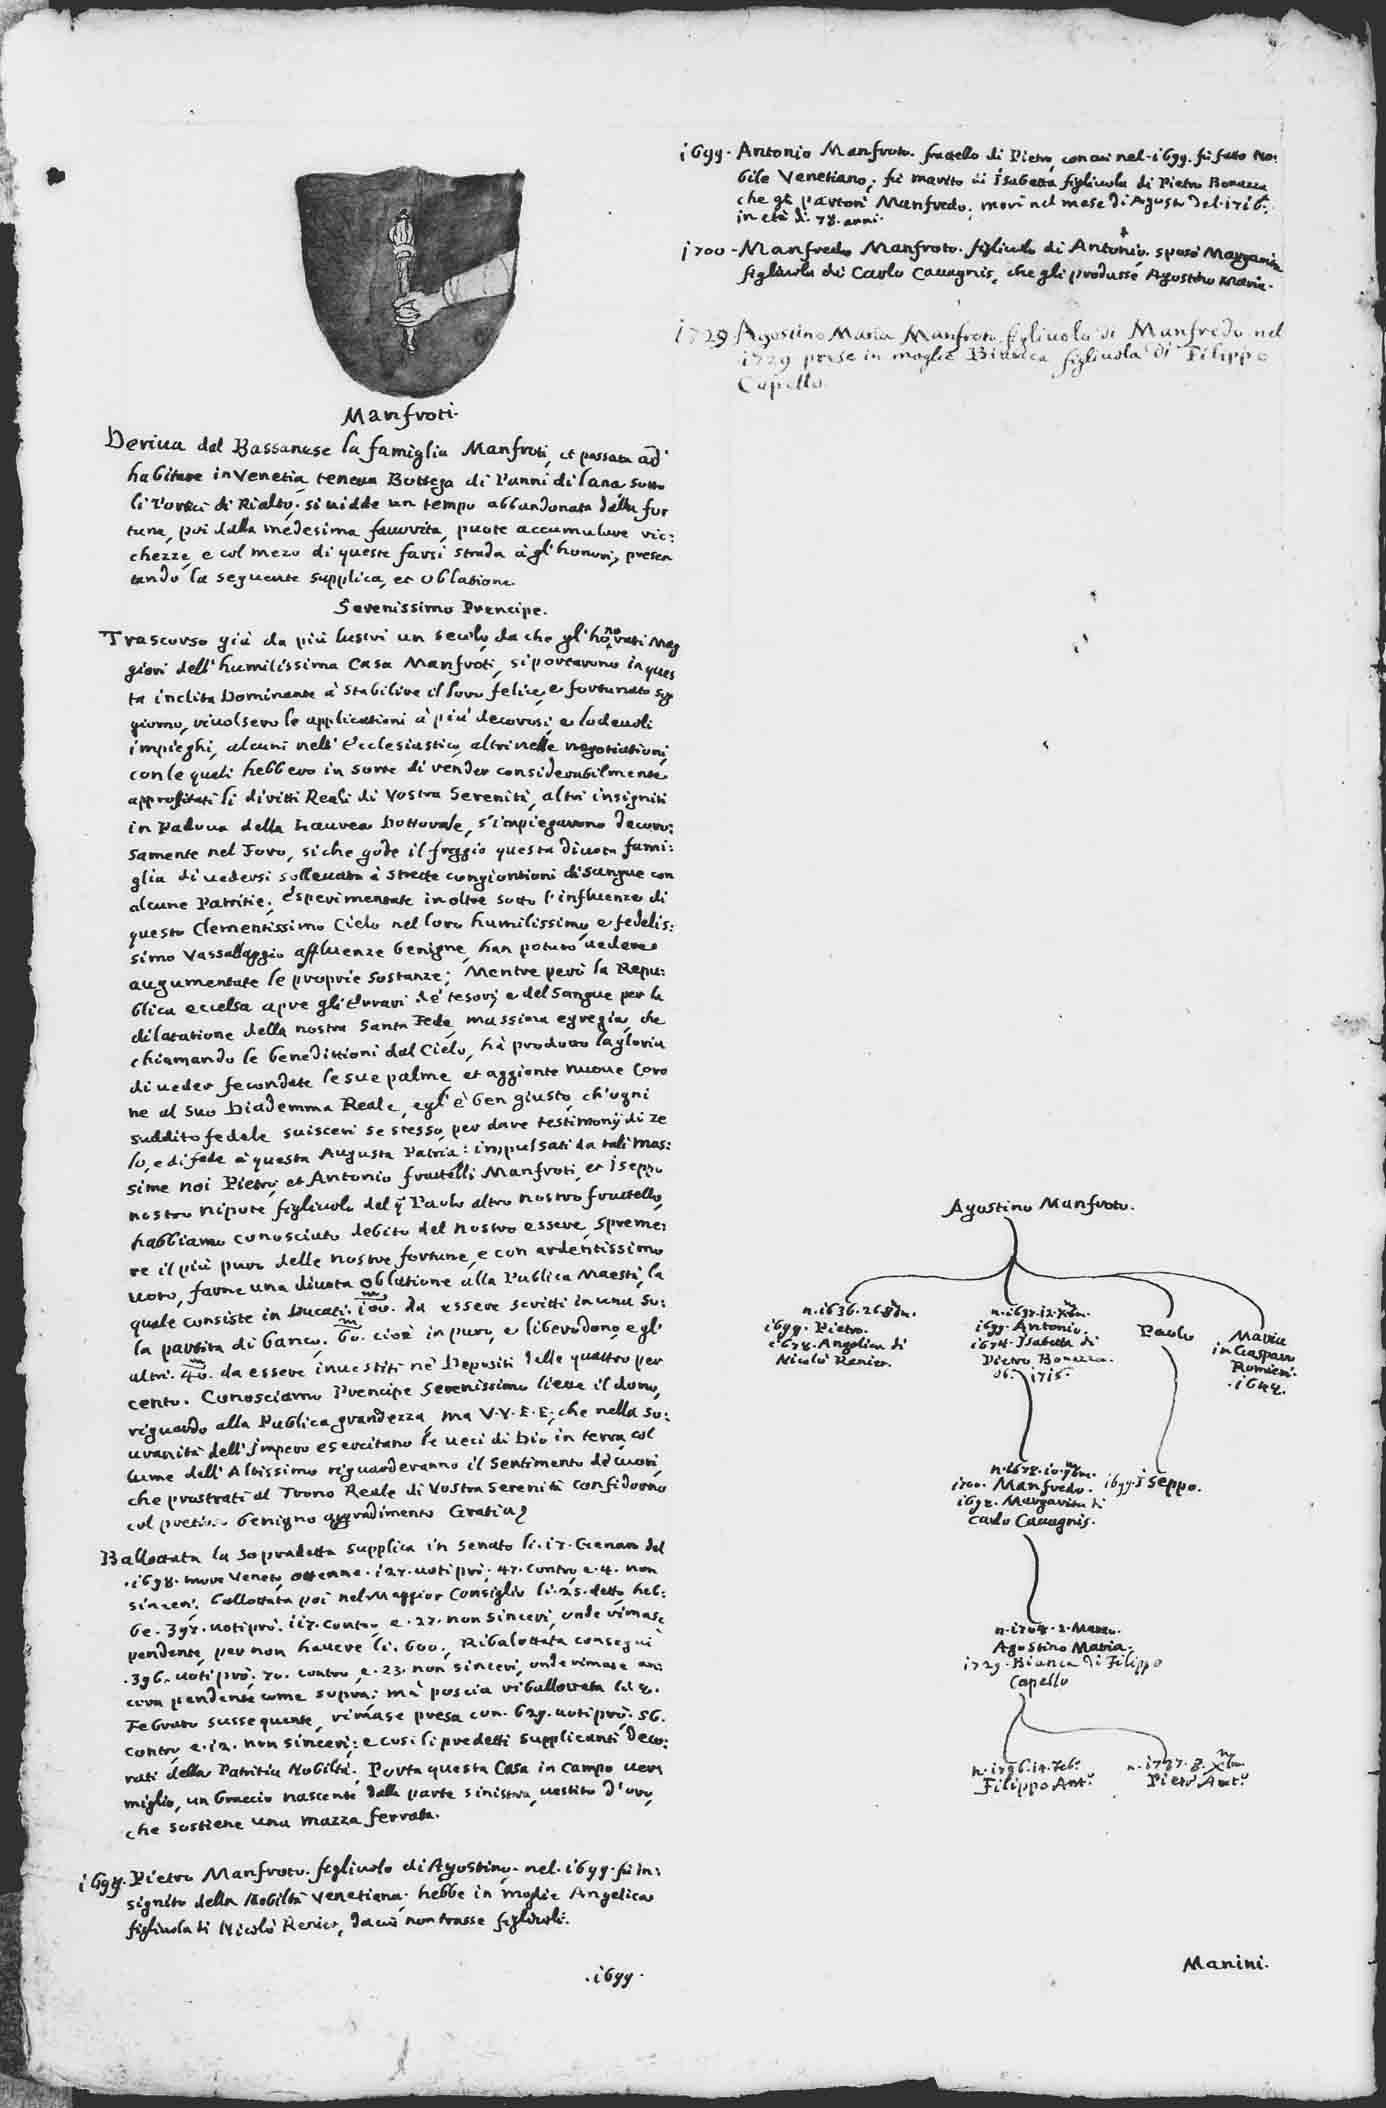 Manfroti.
Deriua dal Bassanese la famiglia Manfroti, et passata ad
habitare in Venetia, teneua Bottega di Panni di lana sotto
li Portici di Rialto; si uidde un tempo abbandonata dalla for
tuna, poi dalla medesima fauorita, puote accumulare ric:
chezze, e col mezo di queste farsi strada à gl'honori, presen
tando la seguente supplica, et oblatione.
Serenissimo Prencipe.
Trascorso già da più lustri un secolo, da che gl'honorati Mag
giori dell'humilissima Casa Manfroti, si portarono in ques
ta inclita Dominante à stabilire il loro felice, e fortunato sog
giorno, riuolsero le applicationi à più decorosi, e lodeuoli
impieghi, alcuni nell'Ecclesiastico, altri nelle negotiationi,
con le quali hebbero in sorte di render considerabilmente
approfitati li diritti Reali di Vostra Serenità, altri insigniti
in Padoua della Laurea Dottorale, s'impiegarono decoro:
samente nel Foro, siche gode il freggio questa diuota fami:
glia di uedersi solleuata à strette congiontioni di sangue con
alcune Patritie; esperimentate in oltre sotto l'influenze di
questo Clementissimo Cielo nel loro humilissimo, e fedelis:
simo Vassallaggio affluenze benigne, han potuto uedere
augumentate le proprie sostanze; Mentre però la Repu:
blica eccelsa apre gli Errari de' tesori, e del Sangue per la
dilatatione della nostra Santa Fede, massima egregia, che
chiamando le benedittioni dal Cielo, hà prodotto la gloria
di ueder fecondate le sue palme, et aggionte nuoue Coro
ne al suo Diademma Reale, egl'è ben giusto, ch'ogni
suddito fedele suisceri se stesso, per dare testimonij di ze
lo, e di fede à questa Augusta Patria: impulsati da tali mas:
sime noi Pietro, et Antonio fratelli Manfroti, et Iseppo
nostro nipote figliuolo del q Paulo altro nostro fratello,
habbiamo conosciuto debito del nostro essere, spreme:
re il più puro delle nostre fortune, e con ardentissimo
uoto, farne una diuota oblatione alla Publica Maestà, la
quale consiste in Ducati. 100. m da essere scritti in una so:
la partita di banco, 60. m cioè in puro, e libero dono, e gl'
altri. 40. m da essere inuestiti ne' Depositi delle quattro per
cento. Conosciamo Prencipe Serenissimo lieue il dono,
riguardo alla Publica grandezza, ma V.V.E.E; che nella so:
uranità dell'Impero esercitano le ueci di Dio in terra, col
lume dell'Altissimo riguarderanno il sentimento de' cuori,
che prostrati al Trono Reale di Vostra Serenità confidorno
col benigno aggradimento Gratia
Ballottata la sopradetta supplica in Senato li. 17. Genaro del
.1698. more Veneto, ottenne. 127. uoti prò; 47. contro, e. 4. non
sinceri; ballottata poi nel Maggior Consiglio li. 25. detto, heb:
be. 397. uoti prò. 117. contro, e. 27. non sinceri, onde rimase
pendente, per non hauere li. 600; Ribalottata conseguì
.396. uoti prò; 70. contro, e. 23. non sinceri, onde rimase an:
cora pendente come sopra; mà poscia riballottata li 8.
Febraro sussequente, rimase presa con. 629. uoti prò; 56.
contro, e. 12. non sinceri; e cosi li predetti supplicanti deco:
rati della Patritia Nobiltà; Porta questa Casa in campo uer
miglio, un braccio nascente dalla parte sinistra, uestito d'oro,
che sostiene una mazza ferrata.
1699. Pietro Manfroto. figliuolo di Agostino, nel. 1699. fù in:
signito della Nobiltà Venetiana; hebbe in moglie Angelica
figliuola di Nicolò Renier, da cui non trasse figliuoli.
.1699.
1699. Antonio Manfroto. fratello di Pietro, con cui nel. 1699. fù fatto No:
bile Venetiano; fù marito di Isabetta figliuola di Pietro Bonazza
che gli partorì Manfredo; morì nel mese di Agosto del. 1716.
in età di. 78. anni.
1700. Manfredo Manfroto. figliuolo di Antonio. sposò Margarita
figliuola di Carlo Cauagnis, che gli produsse Agostino Maria.
1729 Agostino Maria Manfroto figliuolo di Manfredo nel
1729 prese in moglie Bianca figliuola di Filippo
Capello.
Agostino Manfroto.
n. 1636. 26. 8bre.
1699. Pietro.
1678. Angelica di
Nicolò Renier.
n. 1637. 12.
1699. Antonio.
1674. Isabetta di
Pietro Bonazza.
ob. 1715.
Paolo
Maria
in Gasparo
Romieri.
.1644.
n. 1678. 10.
1700. Manfredo.
1698. Margarita di
Carlo Cauagnis.
1699. Iseppo.
n. 1704. 2. Marzo.
Agostino Maria.
1729. Bianca di Filippo
Capello
n. 1736. 14. Feb.o
Filippo Ant.o
n. 1737. 8. Xbre
Pietro Ant.o
Manini.